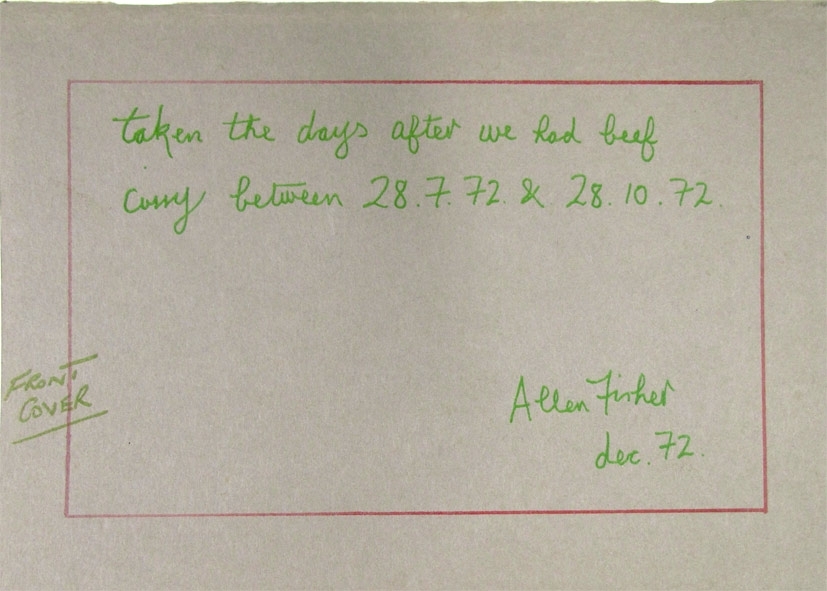 taken the days after we had beef
curry between 28.7.72 & 28.10.72.
FRONT
COVER
Allen Fisher
dec. 72.